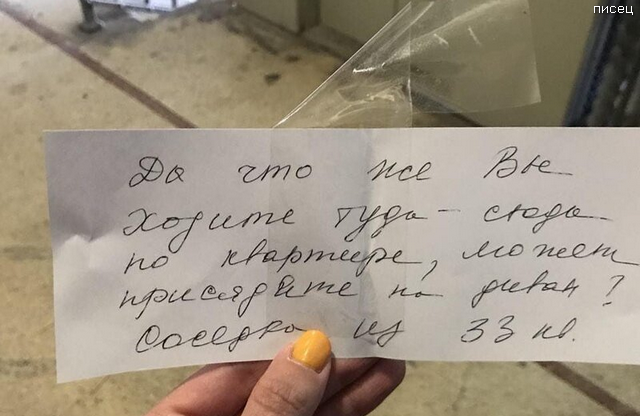 писец
Да что же Вы
ходите туда-сюда
по квартире, может
присядете на диван?
Соседка из 33 кв.